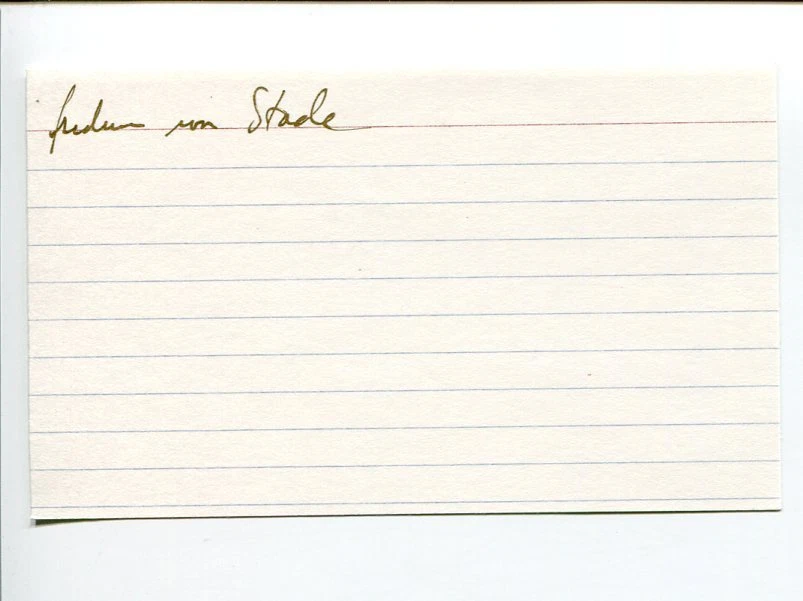 frederica von Stade